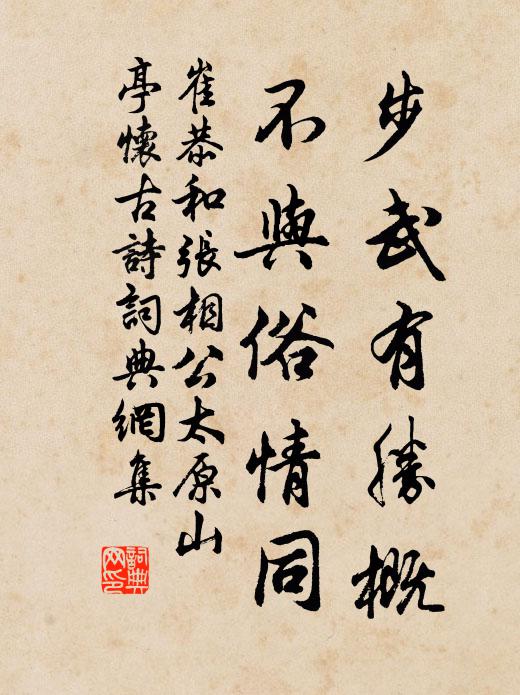 步武有勝概
不與俗情同
崔恭和張相公太原山
亭懷古詩詞典網集
詞典
网印